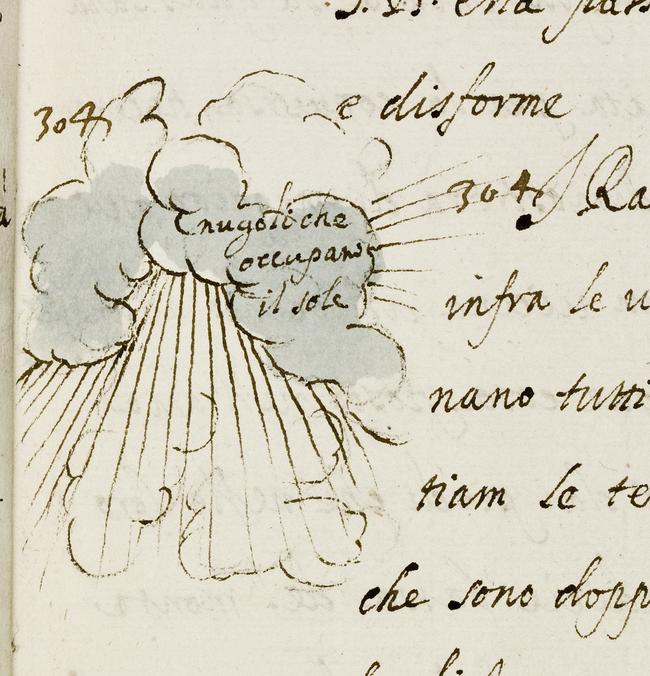 e disforme
304
nugoli che
occupano
il sole
304 Ra
infra le u
nano tutti
tiam le te
che sono dopp